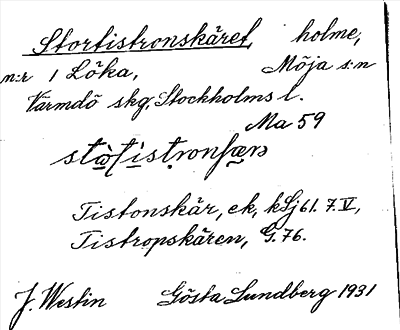 Stortistronskäret, holme,
n:r 1 Löka, Möja s:n
Värmdö skg, Stockholms l.
Ma 59
Tistonskär, ek, kSj 61. 7. V,
Tistropskären, G. 76.
J. Westin Gösta Lundberg 1931